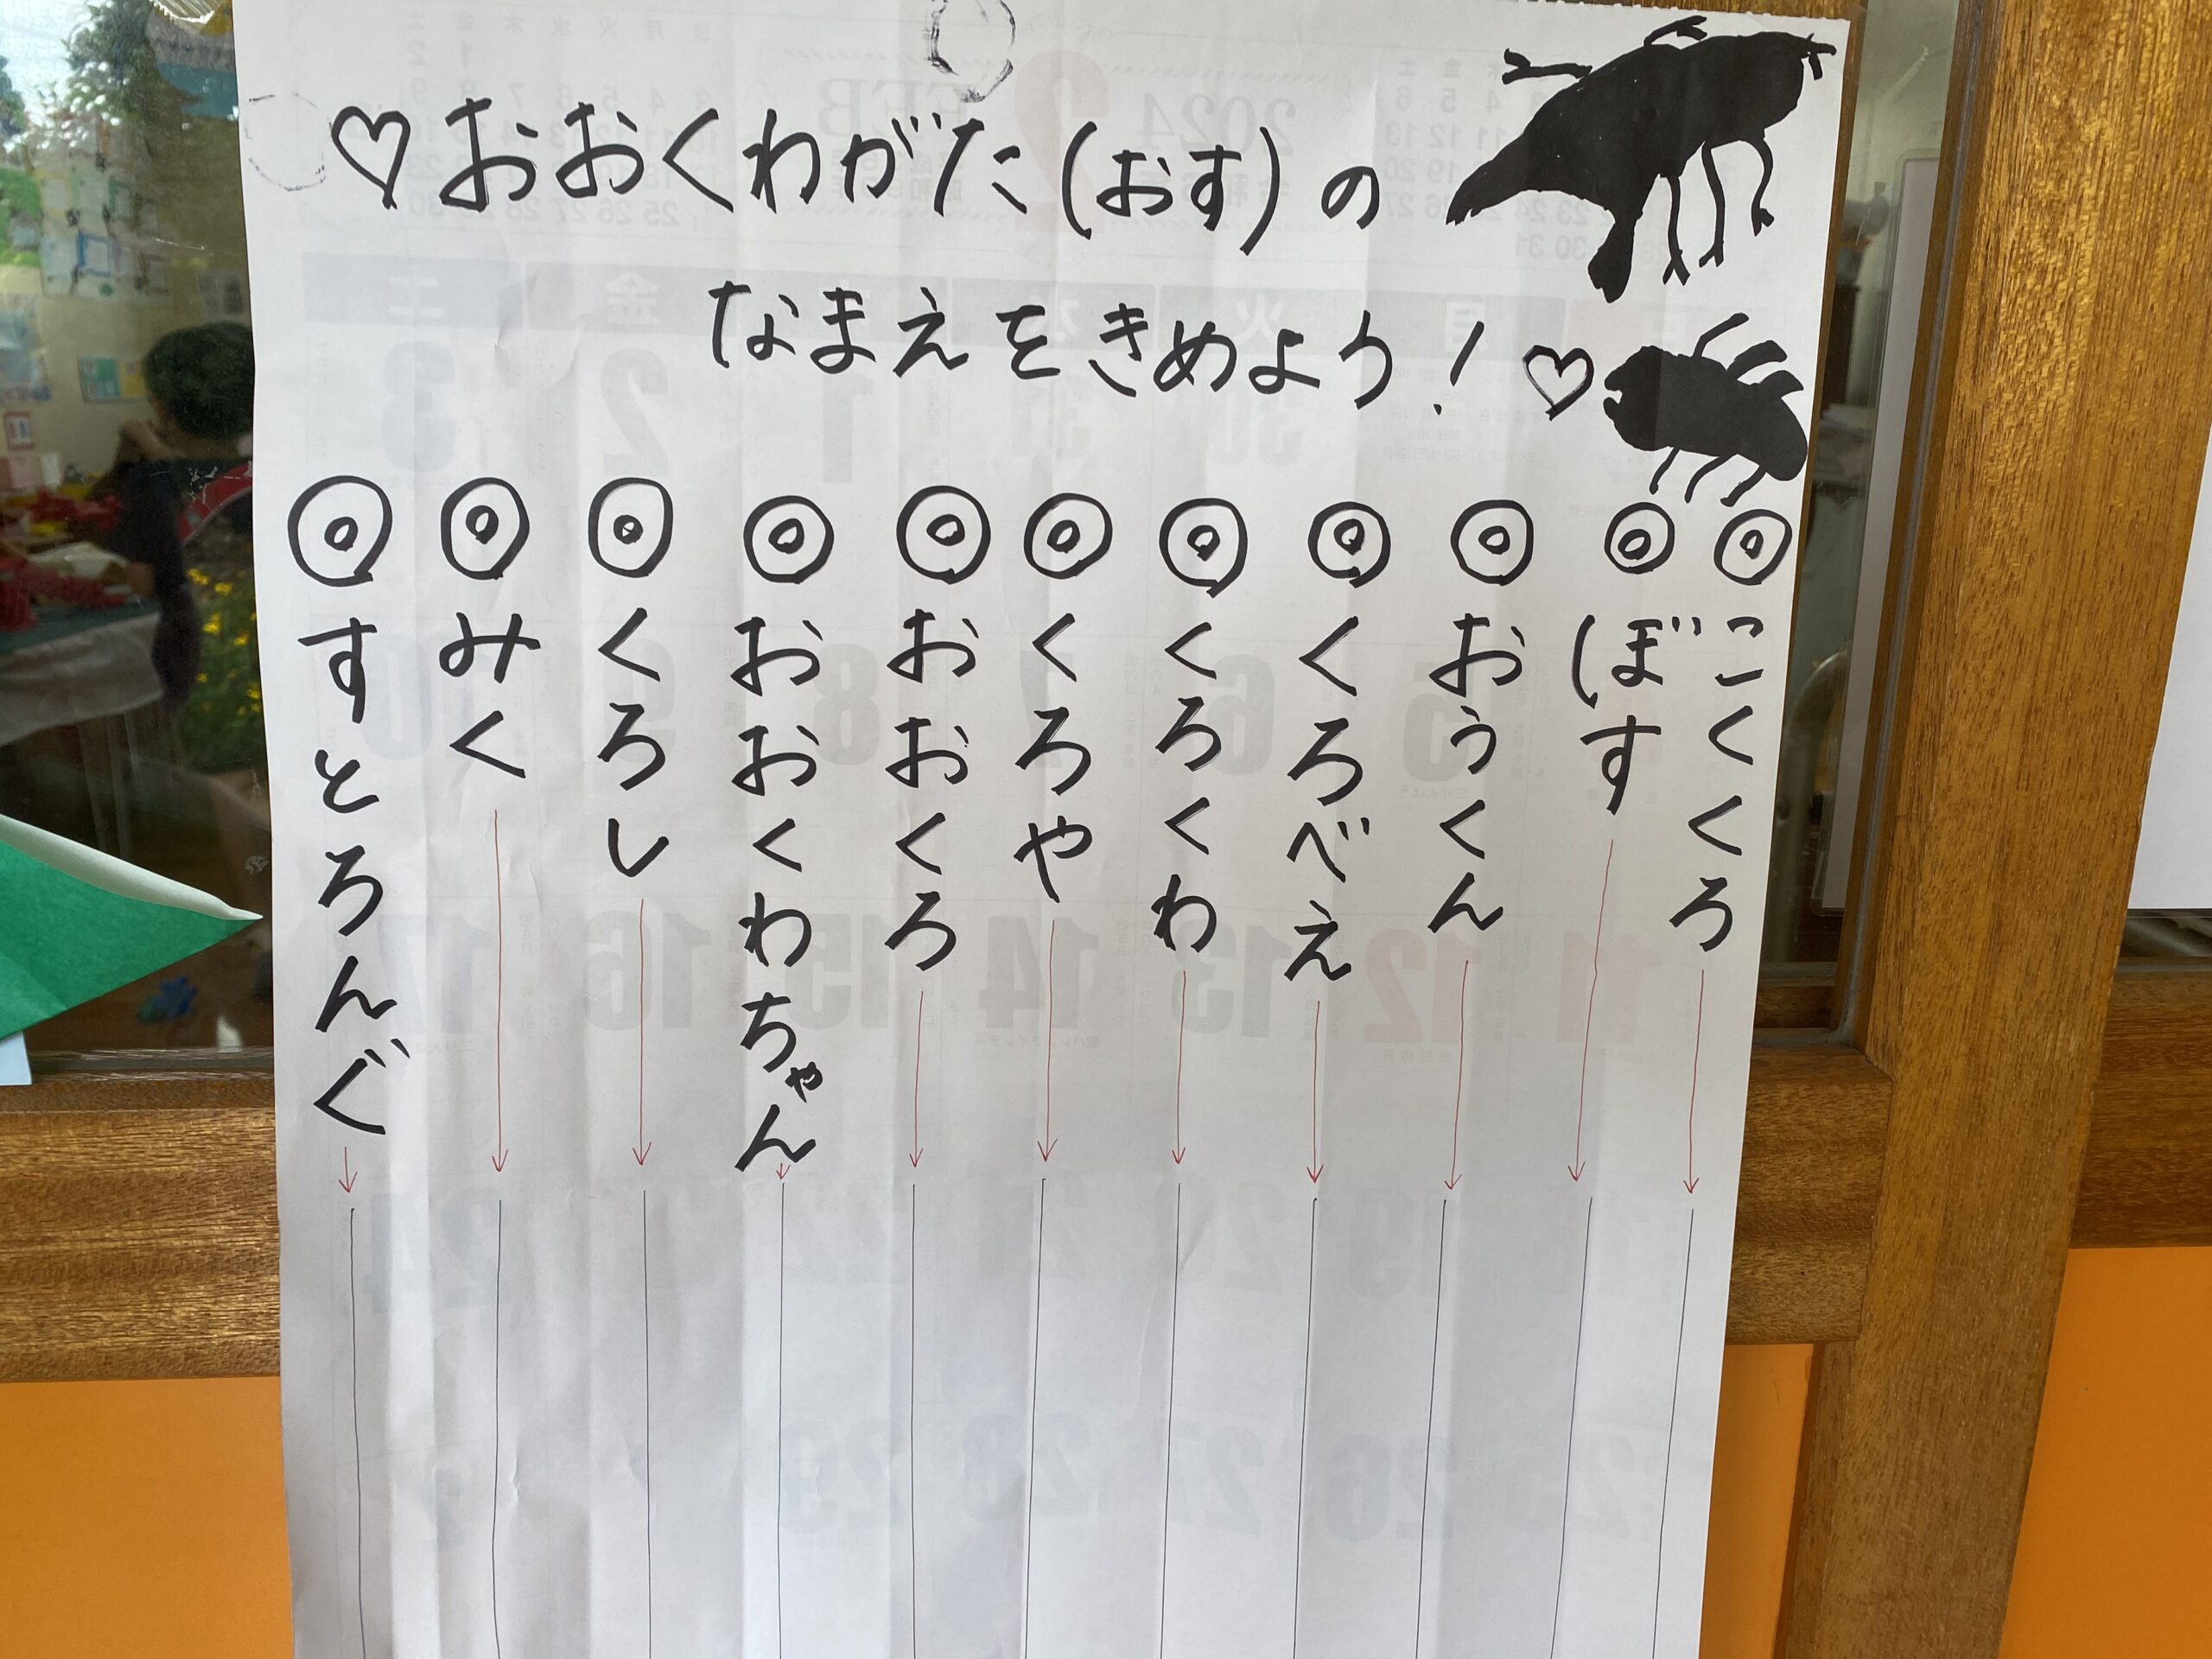 ♡おおくわがた(おす)の
なまえをきめよう!♡
◎こくくろ
◎ぼす
◎おうくん
◎くろべえ
◎くろくわ
◎くろや
◎おおくろ
◎おおくわちゃん
◎くろし
◎みく
◎すとろんぐ